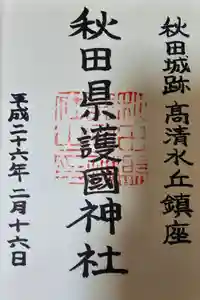 秋田城跡 高清水丘鎮座
秋田県護國神社
平成二十六年 二月十六日